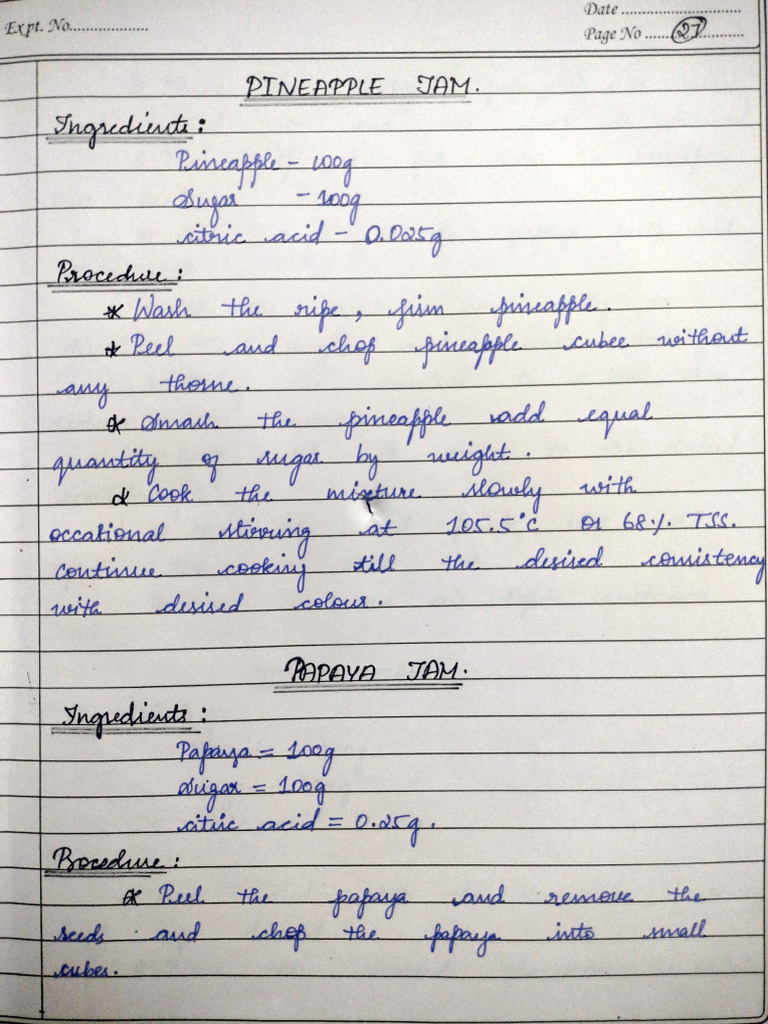 Expt. No...................
Date ..............................
Page No ......27..........
PINEAPPLE JAM.
Ingredients :
Pineapple - 100g
Sugar - 100g
citric acid - 0.025g
Procedure :
* Wash the ripe, firm pineapple.
* Peel and chop pineapple cubes without
any thorns.
* Smash the pineapple add equal
quantity of sugar by weight.
* Cook the mixture slowly with
occational stirring at 105.5°C or 68% TSS.
continue cooking till the desired consistency
with desired colour.
PAPAYA JAM.
Ingredients :
Papaya = 100g
Sugar = 100g
citric acid = 0.25g.
Procedure :
* Peel the papaya and remove the
seeds and chop the papaya into small
cubes.